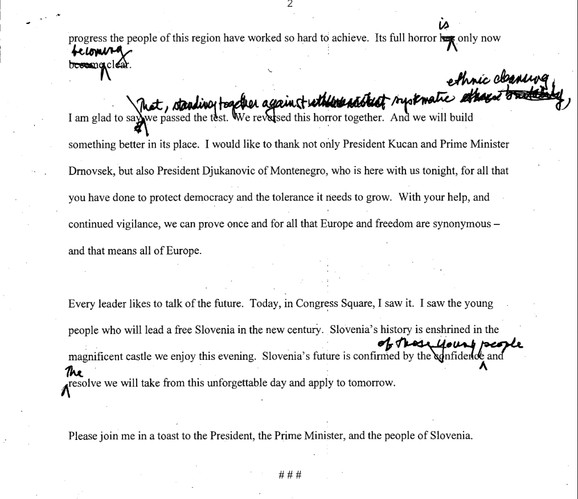 2
is
progress the people of this region have worked so hard to achieve. Its full horror has only now
becoming
becoming clear.
ethnic cleansing,
that, standing together against systematic ethnic
I am glad to say we passed the test. We reversed this horror together. And we will build
something better in its place. I would like to thank not only President Kucan and Prime Minister
Drnovsek, but also President Djukanovic of Montenegro, who is here with us tonight, for all that
you have done to protect democracy and the tolerance it needs to grow. With your help, and
continued vigilance, we can prove once and for all that Europe and freedom are synonymous –
and that means all of Europe.
Every leader likes to talk of the future. Today, in Congress Square, I saw it. I saw the young
people who will lead a free Slovenia in the new century. Slovenia's history is enshrined in the
of those young people
magnificent castle we enjoy this evening. Slovenia's future is confirmed by the confidence and
The
resolve we will take from this unforgettable day and apply to tomorrow.
Please join me in a toast to the President, the Prime Minister, and the people of Slovenia.
# # #